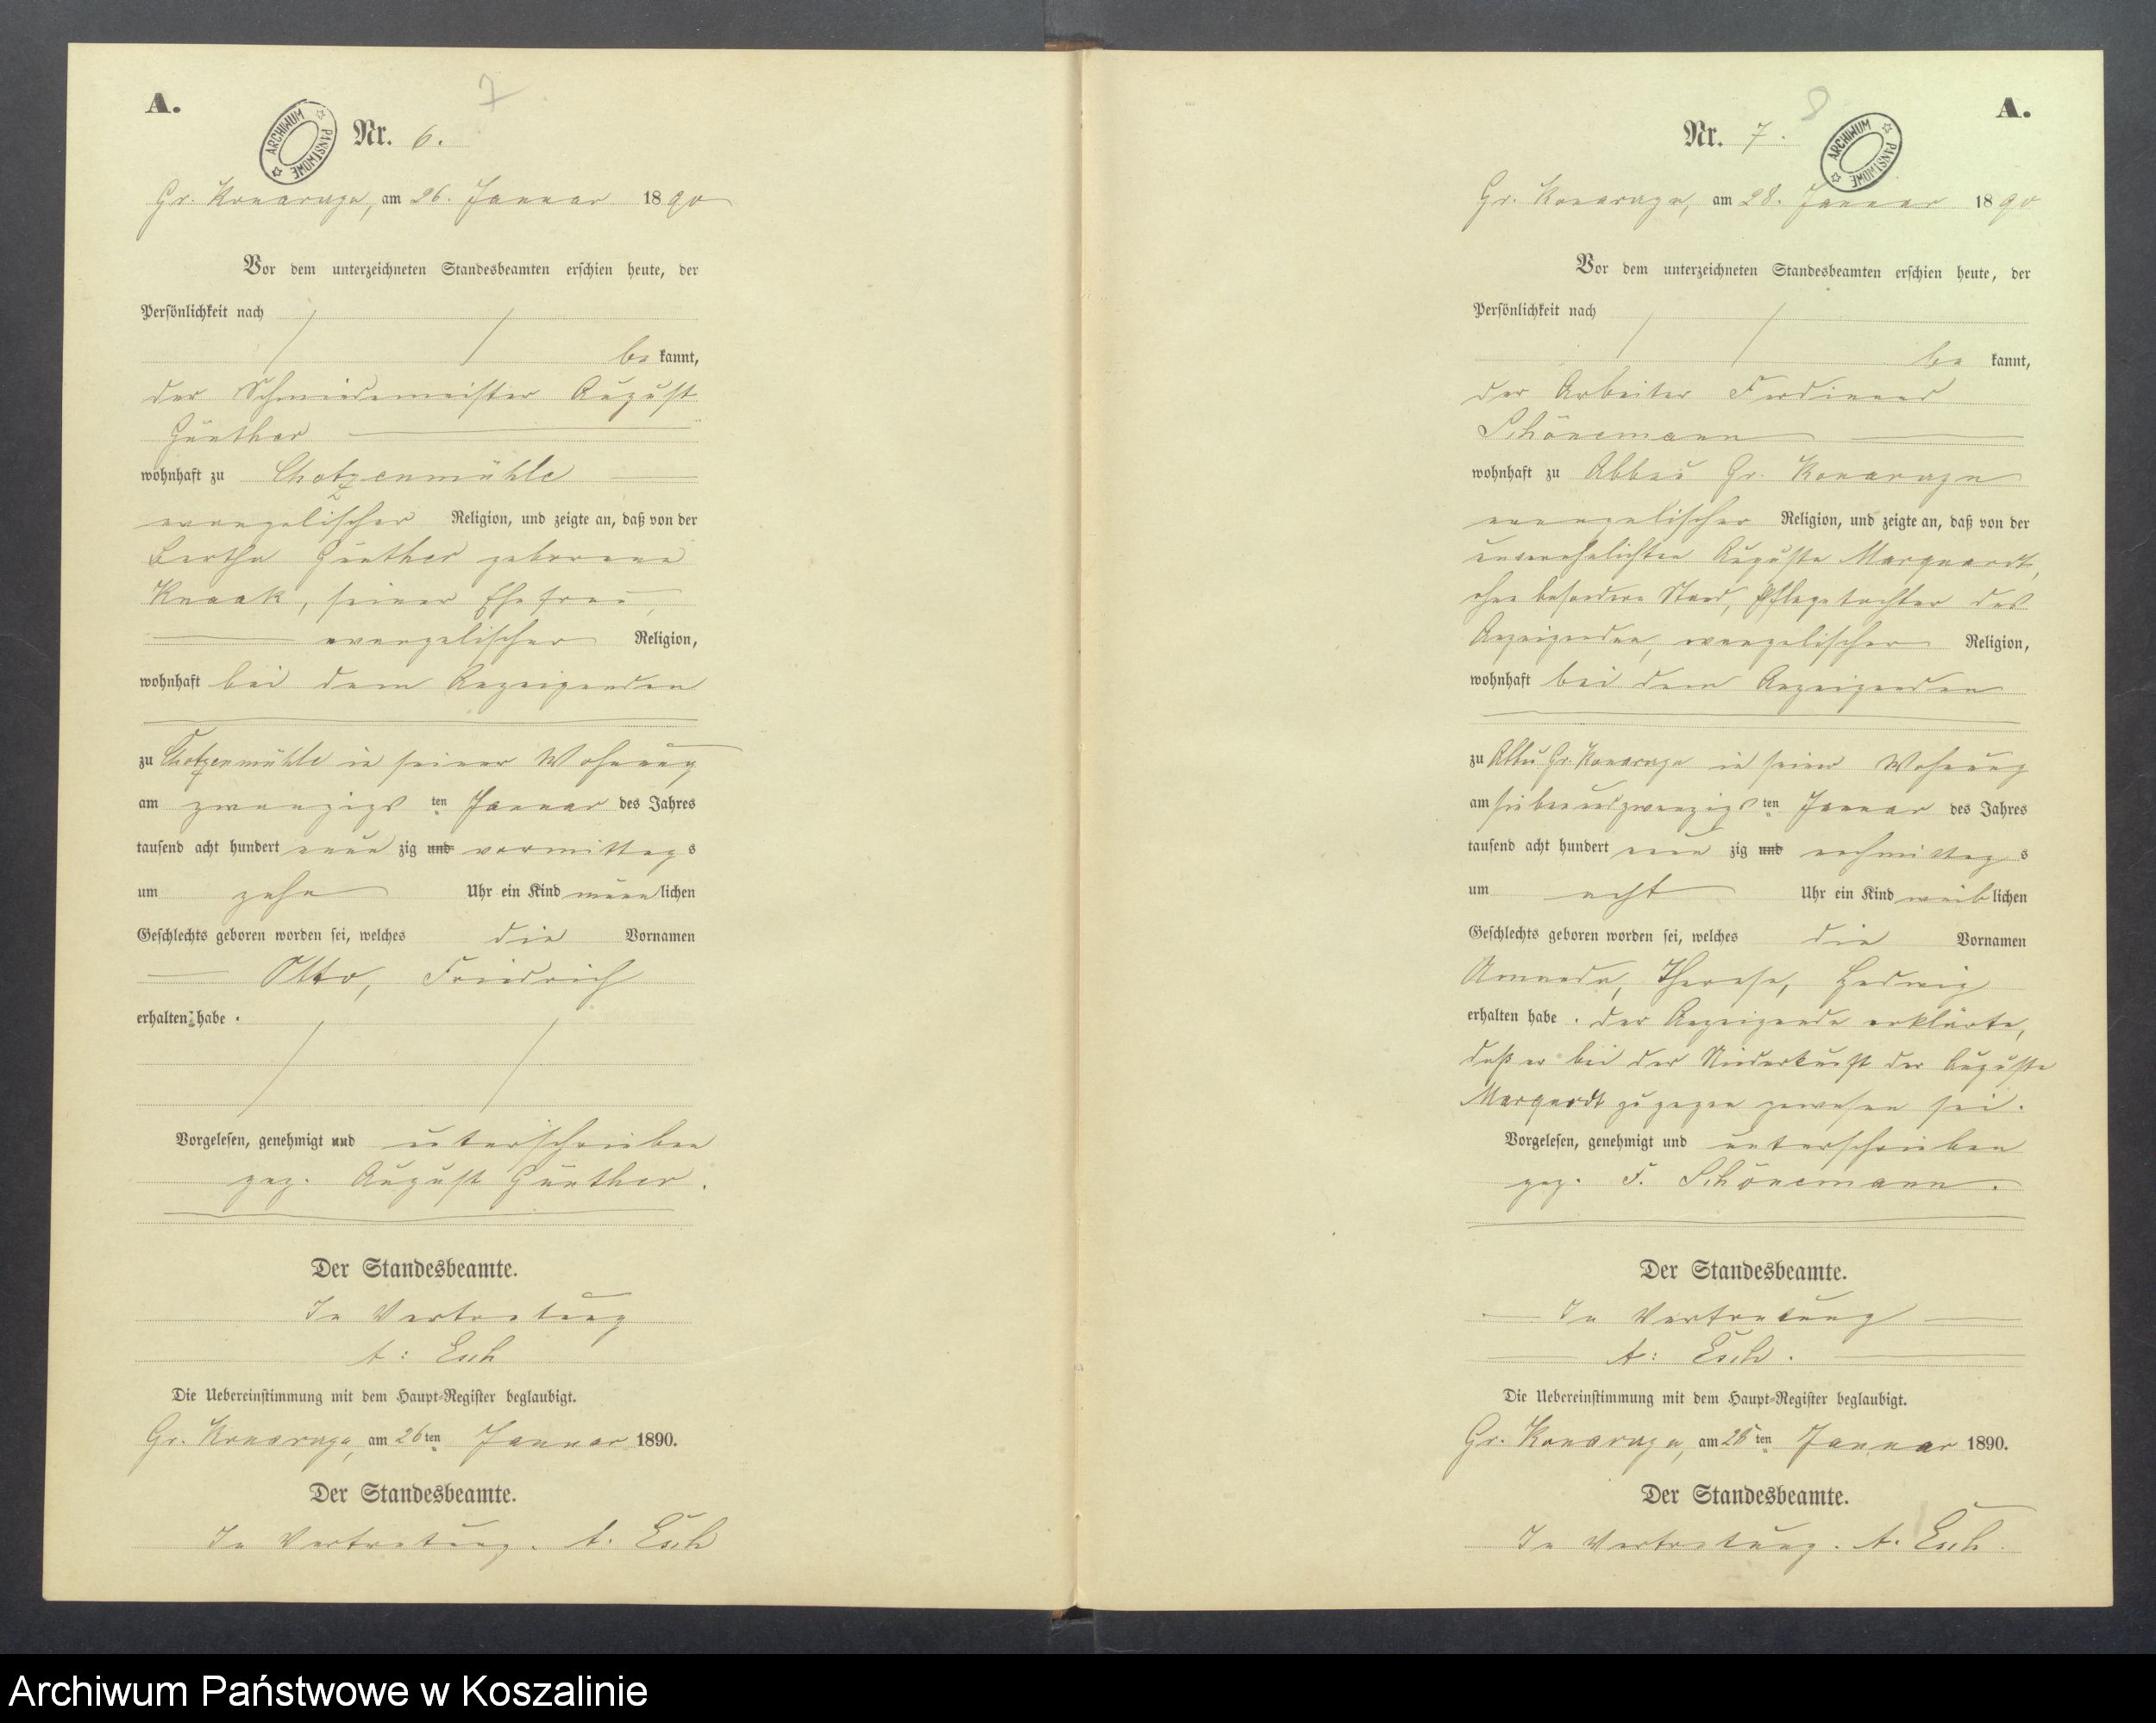 A.
7
ARCHIWUM PAŃSTWOWE
Nr. 6.
Gr. Konarzyn, am 26. Januar 1890
Vor dem unterzeichneten Standesbeamten erschien heute, der
Persönlichkeit nach
be kannt,
der Schmiedemeister August
Günther
wohnhaft zu Chotzenmühle
evangelischer Religion, und zeigte an, daß von der
Bertha Günther geborene
Knaak, seiner Ehefrau,
evangelischer Religion,
wohnhaft bei dem Anzeigenden
zu Chotzenmühle in seiner Wohnung
am zwanzigs ten Januar des Jahres
tausend acht hundert neun zig und vormittag s
um zehn Uhr ein Kind männ lichen
Geschlechts geboren worden sei, welches die Vornamen
Otto, Friedrich
erhalten habe.
Vorgelesen, genehmigt und unterschrieben
gez. August Günther.
Der Standesbeamte.
In Vertretung
A: Esch
Die Uebereinstimmung mit dem Haupt-Register beglaubigt.
Gr. Konarzyn, am 26 ten Januar 1890.
Der Standesbeamte.
In Vertretung. A. Esch
A.
8
ARCHIWUM PAŃSTWOWE
Nr. 7.
Gr. Konarzyn, am 28. Januar 1890
Vor dem unterzeichneten Standesbeamten erschien heute, der
Persönlichkeit nach
be kannt,
der Arbeiter Ferdinand
Schönemann
wohnhaft zu Abbau Gr. Konarzyn
evangelischer Religion, und zeigte an, daß von der
unverehelichten Auguste Marquardt,
ohne besonderen Stand, Pflegetochter des
Anzeigenden, evangelischer Religion,
wohnhaft bei dem Anzeigenden
zu Abbau Gr. Konarzyn in seiner Wohnung
am siebenundzwanzigs ten Januar des Jahres
tausend acht hundert neun zig und nachmittag s
um acht Uhr ein Kind weib lichen
Geschlechts geboren worden sei, welches die Vornamen
Amanda, Therese, Hedwig
erhalten habe. Der Anzeigende erklärte,
daß er bei der Niederkunft der Auguste
Marquardt zugegen gewesen sei.
Vorgelesen, genehmigt und unterschrieben
gez. F. Schönemann.
Der Standesbeamte.
In Vertretung
A: Esch.
Die Uebereinstimmung mit dem Haupt-Register beglaubigt.
Gr. Konarzyn, am 28 ten Januar 1890.
Der Standesbeamte.
In Vertretung. A. Esch.
Archiwum Państwowe w Koszalinie